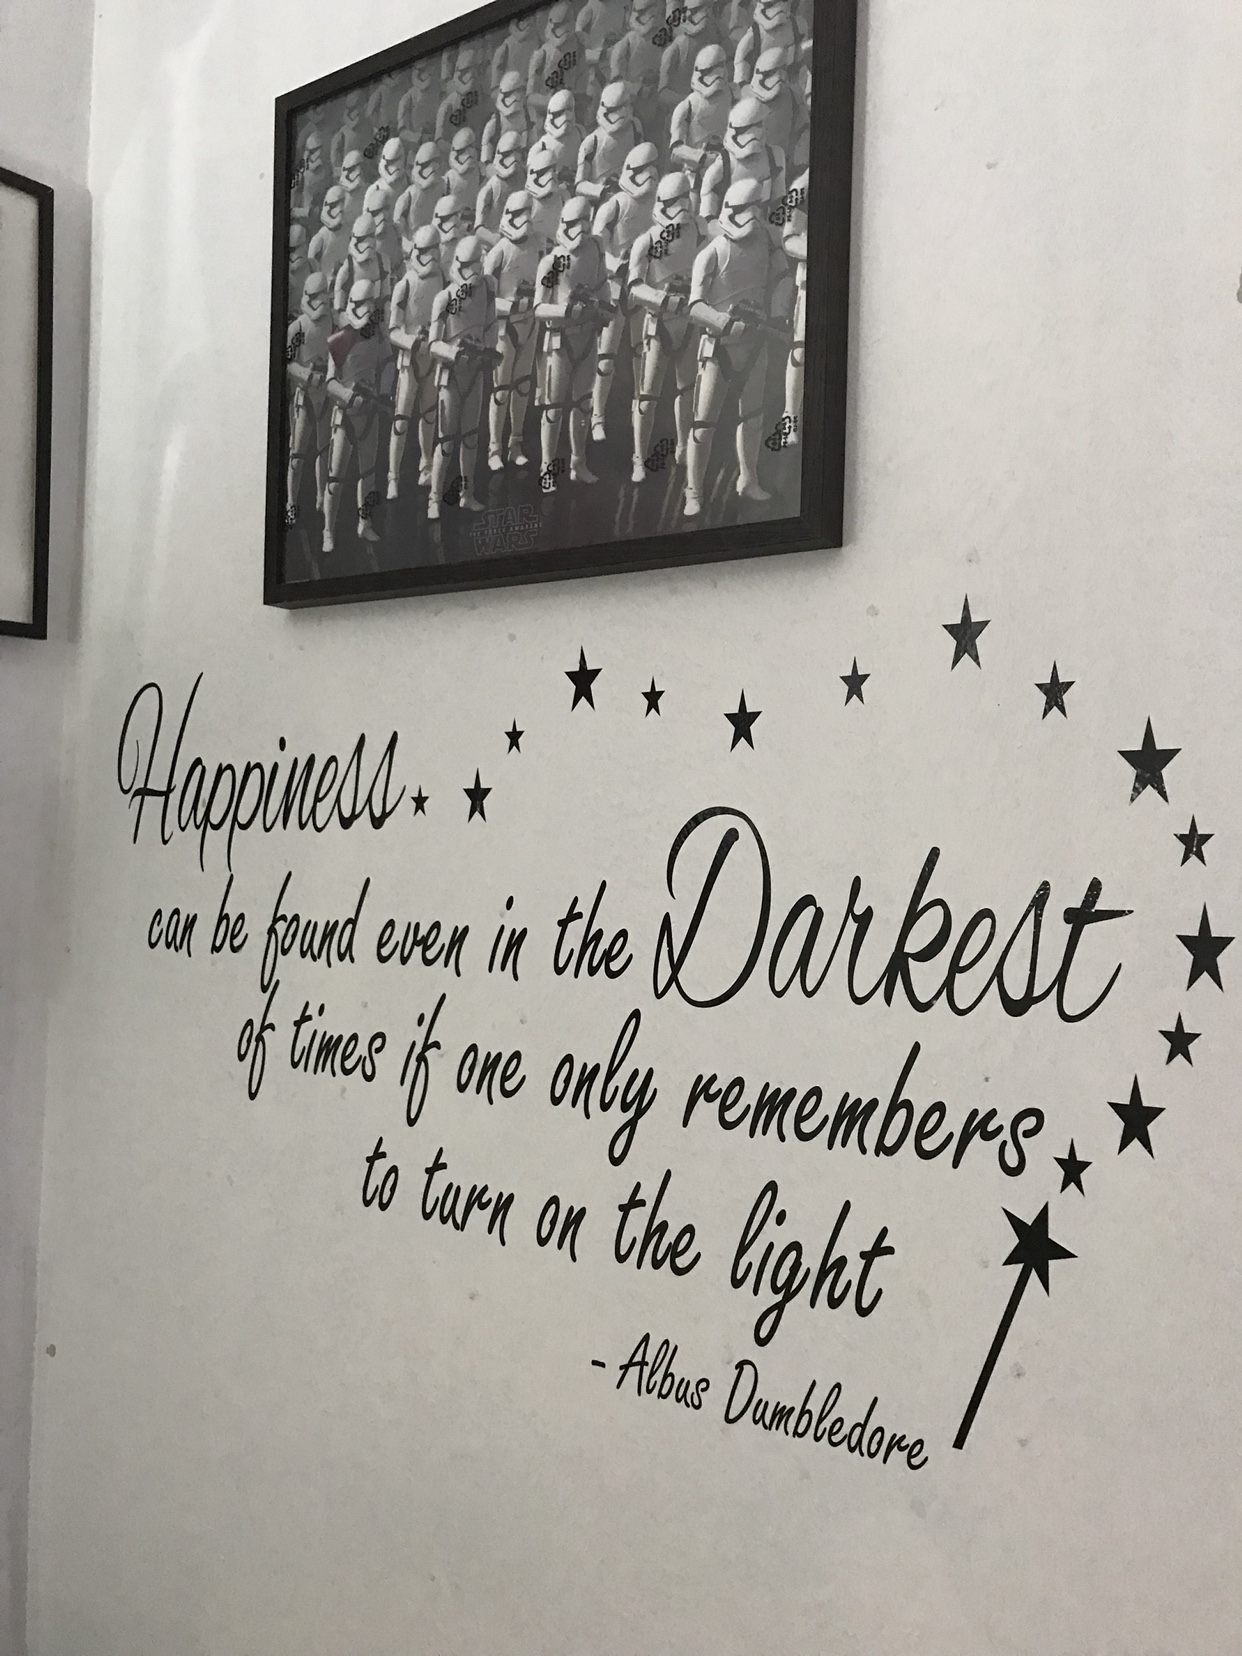 STAR
THE FORCE AWAKENS
WARS
Happiness
can be found even in the Darkest
of times if one only remembers
to turn on the light
- Albus Dumbledore